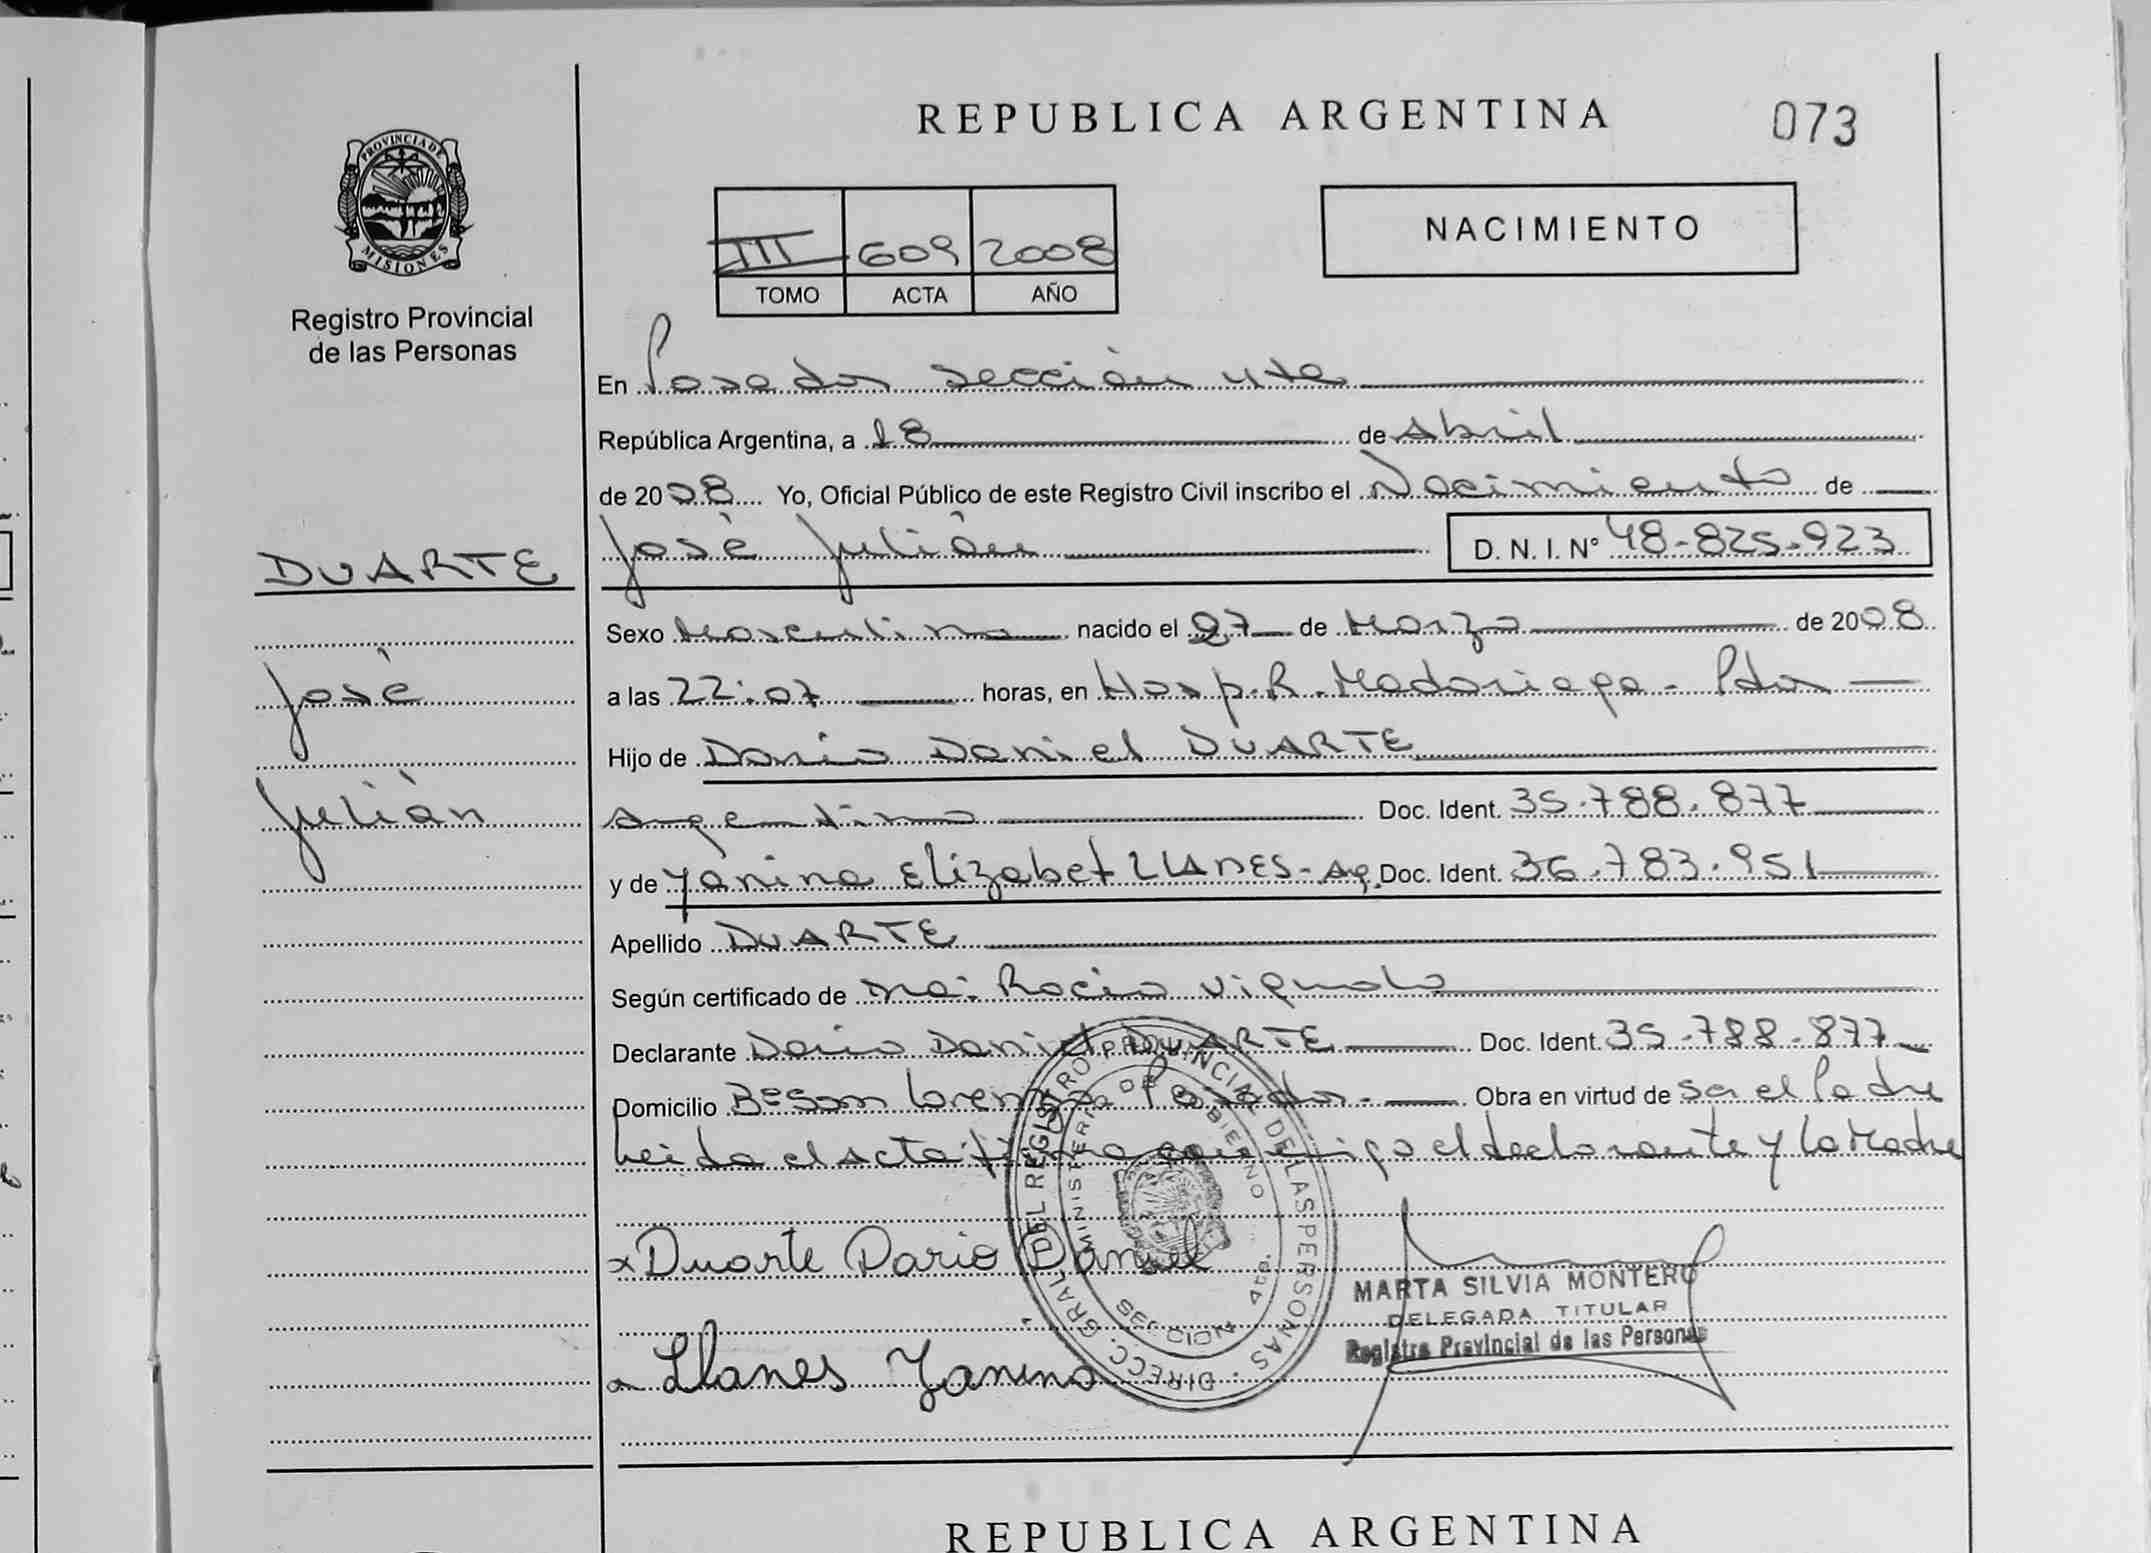 REPUBLICA ARGENTINA
073
PROVINCIA DE
MISIONES
Registro Provincial
de las Personas
NACIMIENTO
III 609 2008
TOMO ACTA AÑO
En Posadas sección 4ta
República Argentina, a 18 de Abril
de 2008 Yo, Oficial Público de este Registro Civil inscribo el Nacimiento de
José Julián D. N. I. Nº 48-825-923
DUARTE
José
Julián
Sexo Masculino nacido el 27 de Marzo de 2008
a las 22:07 horas, en Hosp. R. Madariaga - Pdas
Hijo de Dario Daniel DUARTE
Argentino Doc. Ident. 35.788.877
y de Yanina Elizabet LLANES - Ag. Doc. Ident. 36.783.951
Apellido DUARTE
Según certificado de Rocio
Declarante Dario Daniel DUARTE Doc. Ident. 35.788.877
Domicilio Bº San Lorenzo Posadas - Obra en virtud de ser el Padre
leida el acta firma conmigo el declarante y la Madre
x Duarte Dario Daniel
Llanes Yanina
DIRECC. GRAL. DEL REGISTRO PROVINCIAL DE LAS PERSONAS
MINISTERIO DE GOBIERNO
SECCION 4ta.
MARTA SILVIA MONTERO
DELEGADA TITULAR
Registro Provincial de las Personas
REPUBLICA ARGENTINA